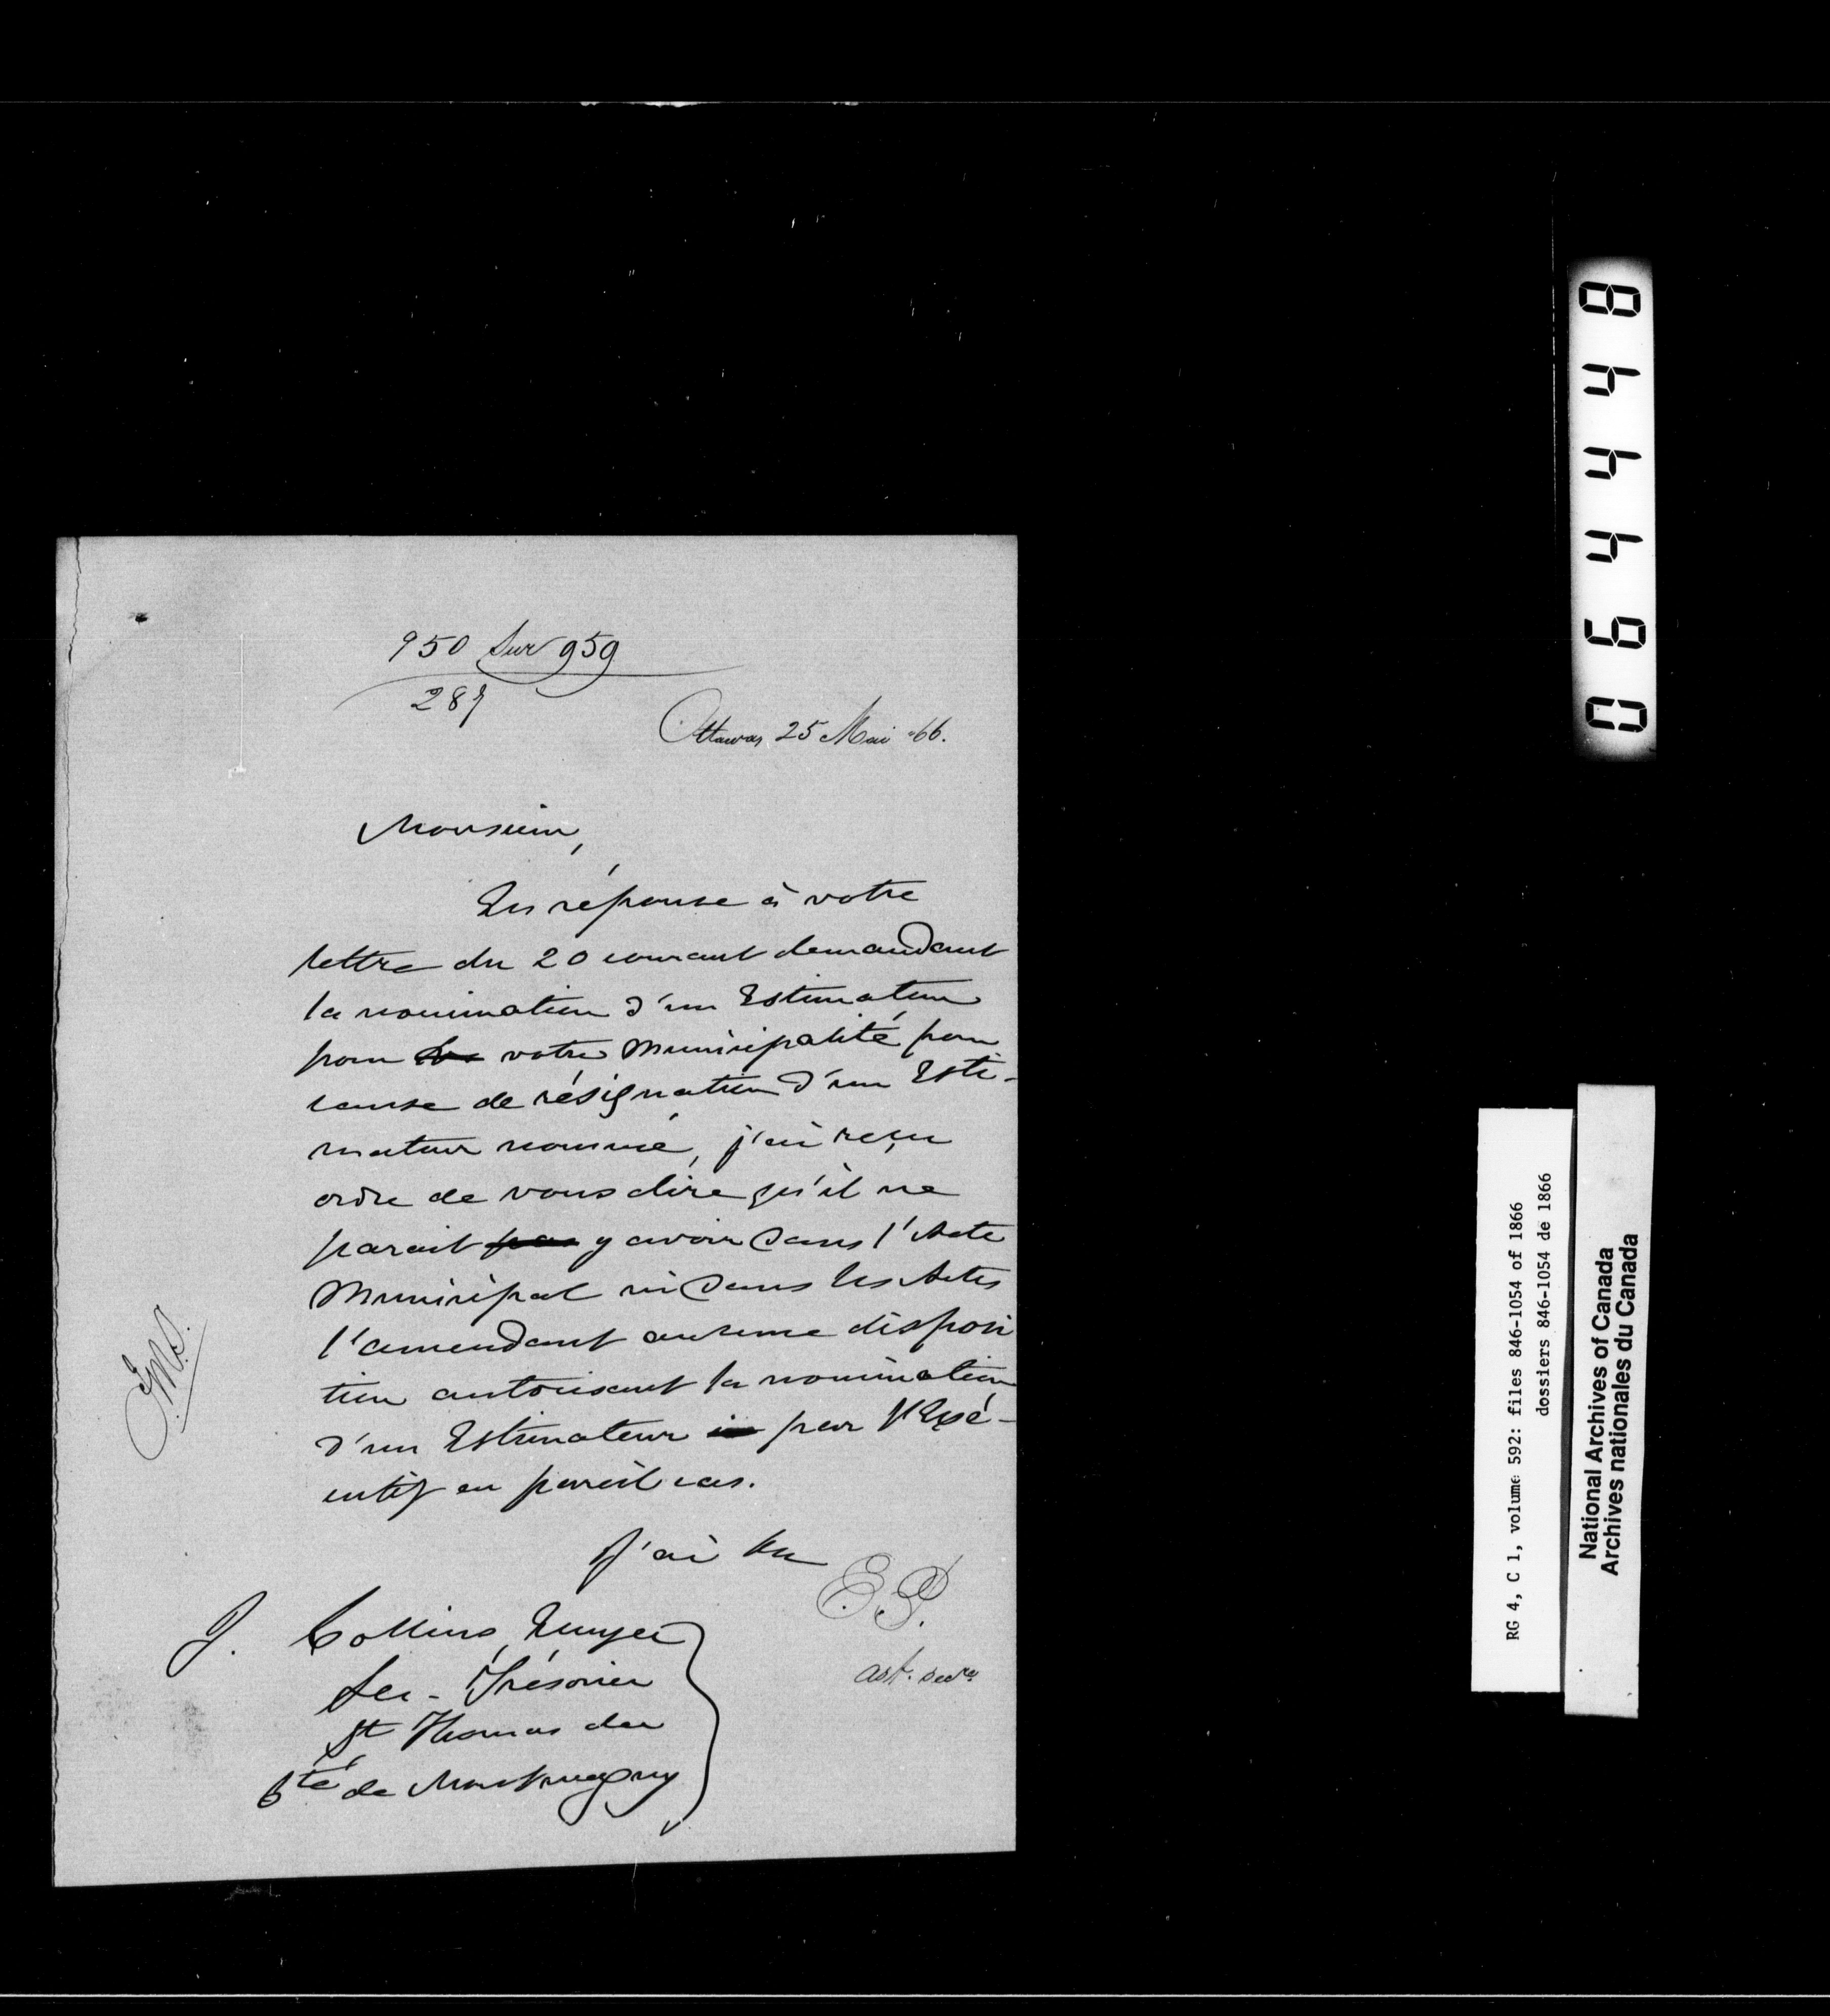 950 Sur 959
287
Ottawa, 25 Mai -66.
Monsieur,
En réponse à votre
lettre du 20 courant demandant
la nomination d'un Estimateur
pour votre Municipalité pour
cause de résignation d'un Esti-
mateur nommé, j'ai reçu
ordre de vous dire qu'il ne
parait pas y avoir dans l'Acte
Municipal ni dans les Actes
l'amendant aucune disposi
tion autorisant la nomination
d'un Estimateur par l'Exé-
cutif en pareil cas.
J'ai
E.P.
asst. secre
J. Collins
Sec-Trésorier
St Thomas de
Cté de Montmagny
RG 4, C 1, volume 592: files 846-1054 of 1866
dossiers 846-1054 de 1866
National Archives of Canada
Archives nationales du Canada
064448